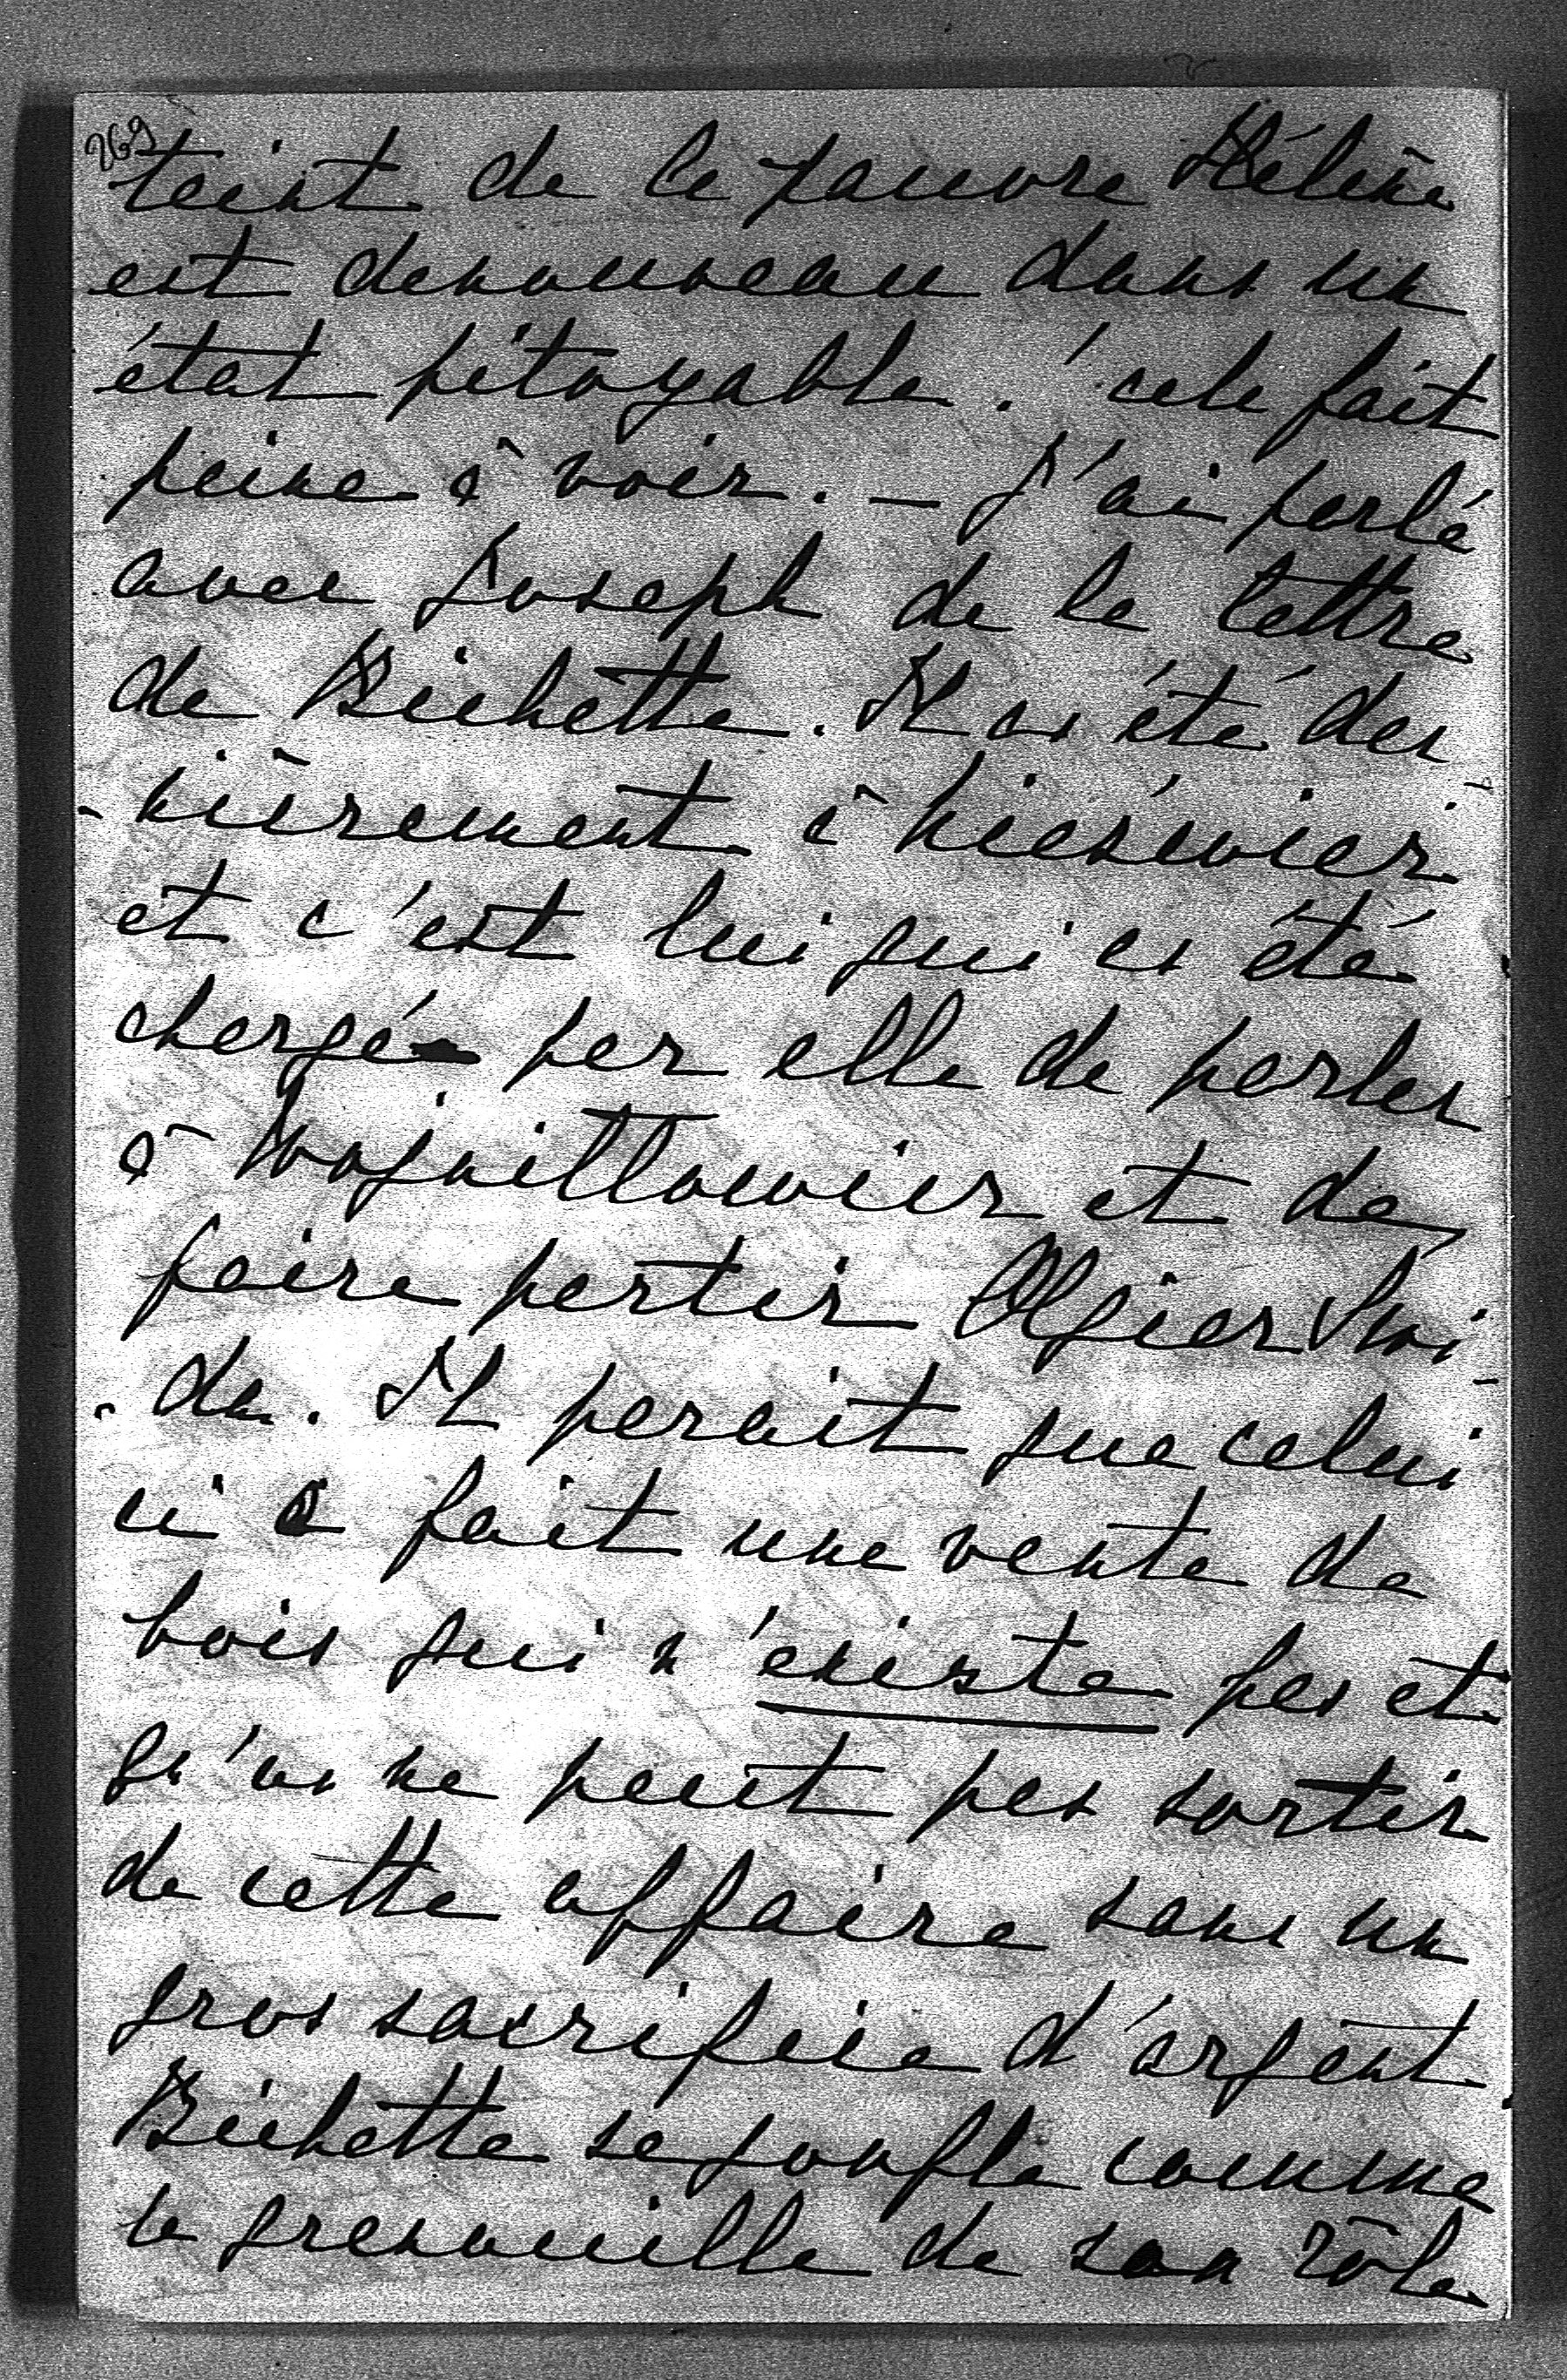 269
teint de la pauvre Hélène
est denouveau dans un
état pitoyable. cela fait
peine à voir. — J'ai parlé
avec Joseph de la lettre
de Bichette. Il a été der
-nièrement à Nieświez
et c'est lui qui a été
chargé par elle de parler
à Wojnillowicz et de
faire partir Olgierd Swi-
-da. Il parait que celui
ci a fait une vente de
bois qui n'existe pas et
qu'on ne peut pas sortir
de cette affaire sans un
gros sacrifice d'argent.
Bichette se gonfle comme
la grenouille de son rôle